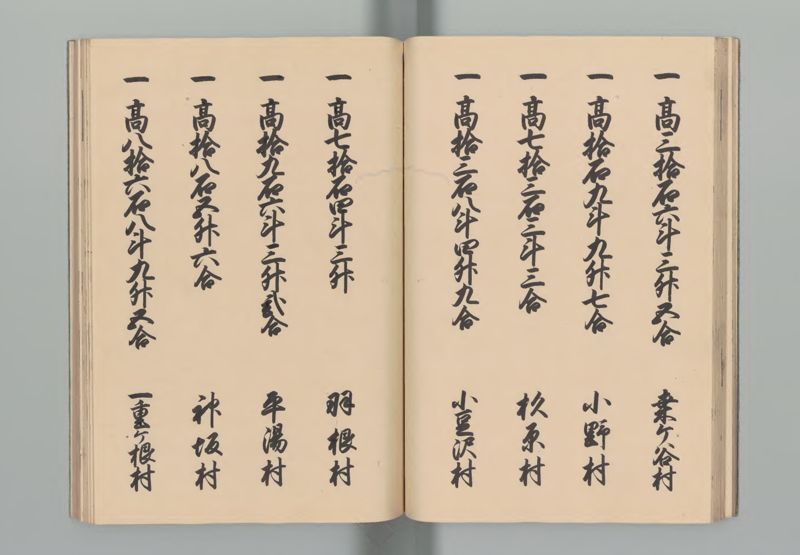 一 高三拾石六斗三升五合 桑ケ谷村
一 高拾石九斗九升七合 小野村
一 高七拾三石三斗三合 杉原村
一 高拾三石八斗四升九合 小豆沢村
一 高七拾石四斗三升 羽根村
一 高拾九石六斗三升弐合 平湯村
一 高拾八石五升六合 神坂村
一 高八拾六石八斗九升五合 一重ケ根村